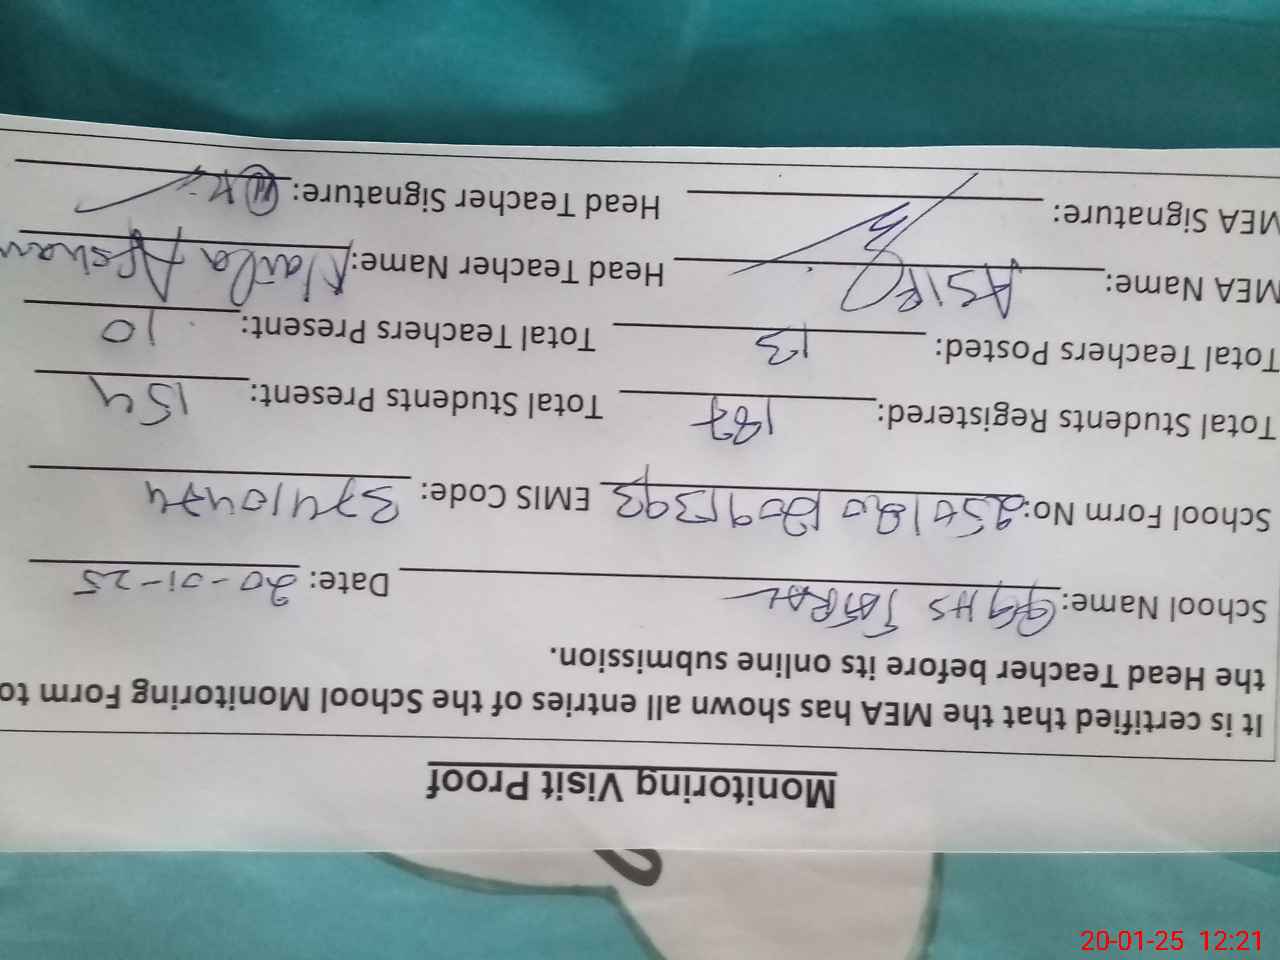 Monitoring Visit Proof
It is certified that the MEA has shown all entries of the School Monitoring Form to
the Head Teacher before its online submission.
School Name: GGHS Date: 20-01-25
School Form No: EMIS Code: 37410474
Total Students Registered: 187 Total Students Present: 154
Total Teachers Posted: 13 Total Teachers Present: 10
MEA Name: ASIF Head Teacher Name: Naila Afshan
MEA Signature: Head Teacher Signature:
20-01-25 12:21